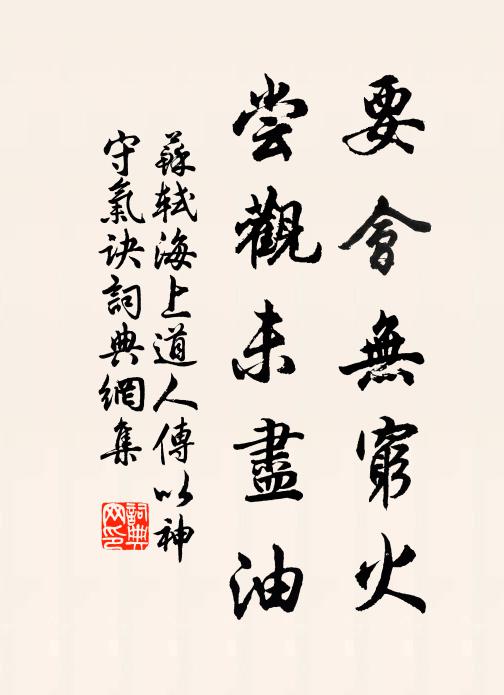 要會無窮火
尝觀未盡油
蘇軾海上道人傳以神
守氣诀詞典網集
詞典
网印